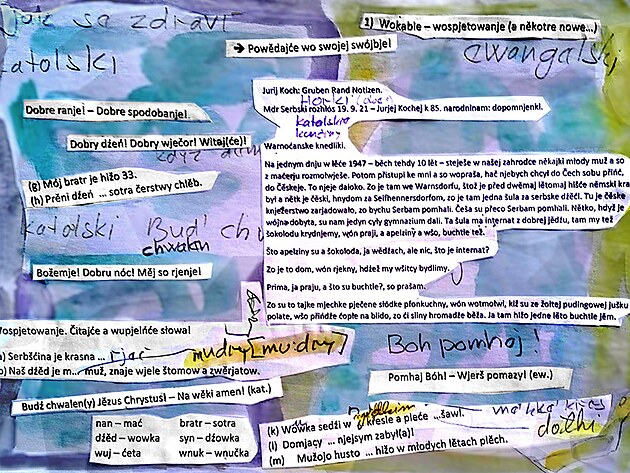 Jak so zdravi
1) Wokable – wospjetowanje (a někotre nowe...)
➔ Powědajće wo swojej swójbje!
katolski
ewangelski
Jurij Koch: Gruben Rand Notizen.
Mdr Serbski rozhłós 19. 9. 21 – Jurjej Kochej k 85. narodninam: dopomnjenki.
katolske
Dobre ranje! – Dobre spodobanje!
Dobry dźeń! Dobry wječor! Witaj(će)!
Warnoćanske knedliki.
Na jednym dnju w lěće 1947 – běch tehdy 10 lět – steješe w našej zahrodce někajki młody muž a so
z maćerju rozmołwješe. Potom přistupi ke mni a so wopraša, hač njebych chcył do Čech sobu přińć,
do Čěskeje. To njeje daloko. Zo je tam we Warnsdorfu, štož je před dwěmaj lětomaj hišće němski kraj
był a nětk je čěski, hnydom za Seifhennersdorfom, zo je tam jedna šula za serbske dźěći. Tu je čěske
knježerstwo zarjadowało, zo bychu Serbam pomhali. Čěša su přeco Serbam pomhali. Něhko, hdyž je
wójna dobyta, su nam jedyn cyły gymnazium dali. Ta šula ma internat z dobrej jědźu, tam my tež
šokolodu krydnjemy, wón praji, a apelziny a wšo, buchtle tež.
(g) Mój bratr je hižo 33.
(h) Prěni dźeń ... sotra čerstwy chlěb.
katolski
Bud' chwalen
Što apelziny su a šokoloda, ja wědźach, ale nic, što je internat?
Zo je to dom, wón rjekny, hdźež my wšitcy bydlimy.
Božemje! Dobru nóc! Měj so rjenje!
Prima, ja praju, a što su buchtle?, so prašam.
Zo su to tajke mjechke pječene słódke plonkuchny, wón wotmołwi, kiž su ze žołtej pudingowej jušku
polate, wšo přińdźe ćopłe na blido, zo ći sliny hromadźe běža. Ja tam hižo jedne lěto buchtle jěm.
Wospjetowanje. Čitajće a wupjelńće słowa!
a) Serbšćina je krasna ... rjač
mudry [mu:dry]
Boh pomhaj!
b) Naš dźěd je m... muž, znaje wjele štomow a zwěrjatow.
Pomhaj Bóh! – Wjerš pomazy! (ew.)
Budź chwalen(y) Jězus Chrystus! – Na wěki amen! (kat.)
nan – mać    bratr – sotra
dźěd – wowka    syn – dźowka
wuj – ćeta    wnuk – wnučka
(k) Wowka sedźi w ... kresle a pleće ... šawl.
(l) Domjacy ... njejsym zabył(a)!
dołhi
(m) Mužojo husto ... hižo w młodych lětach plěch.